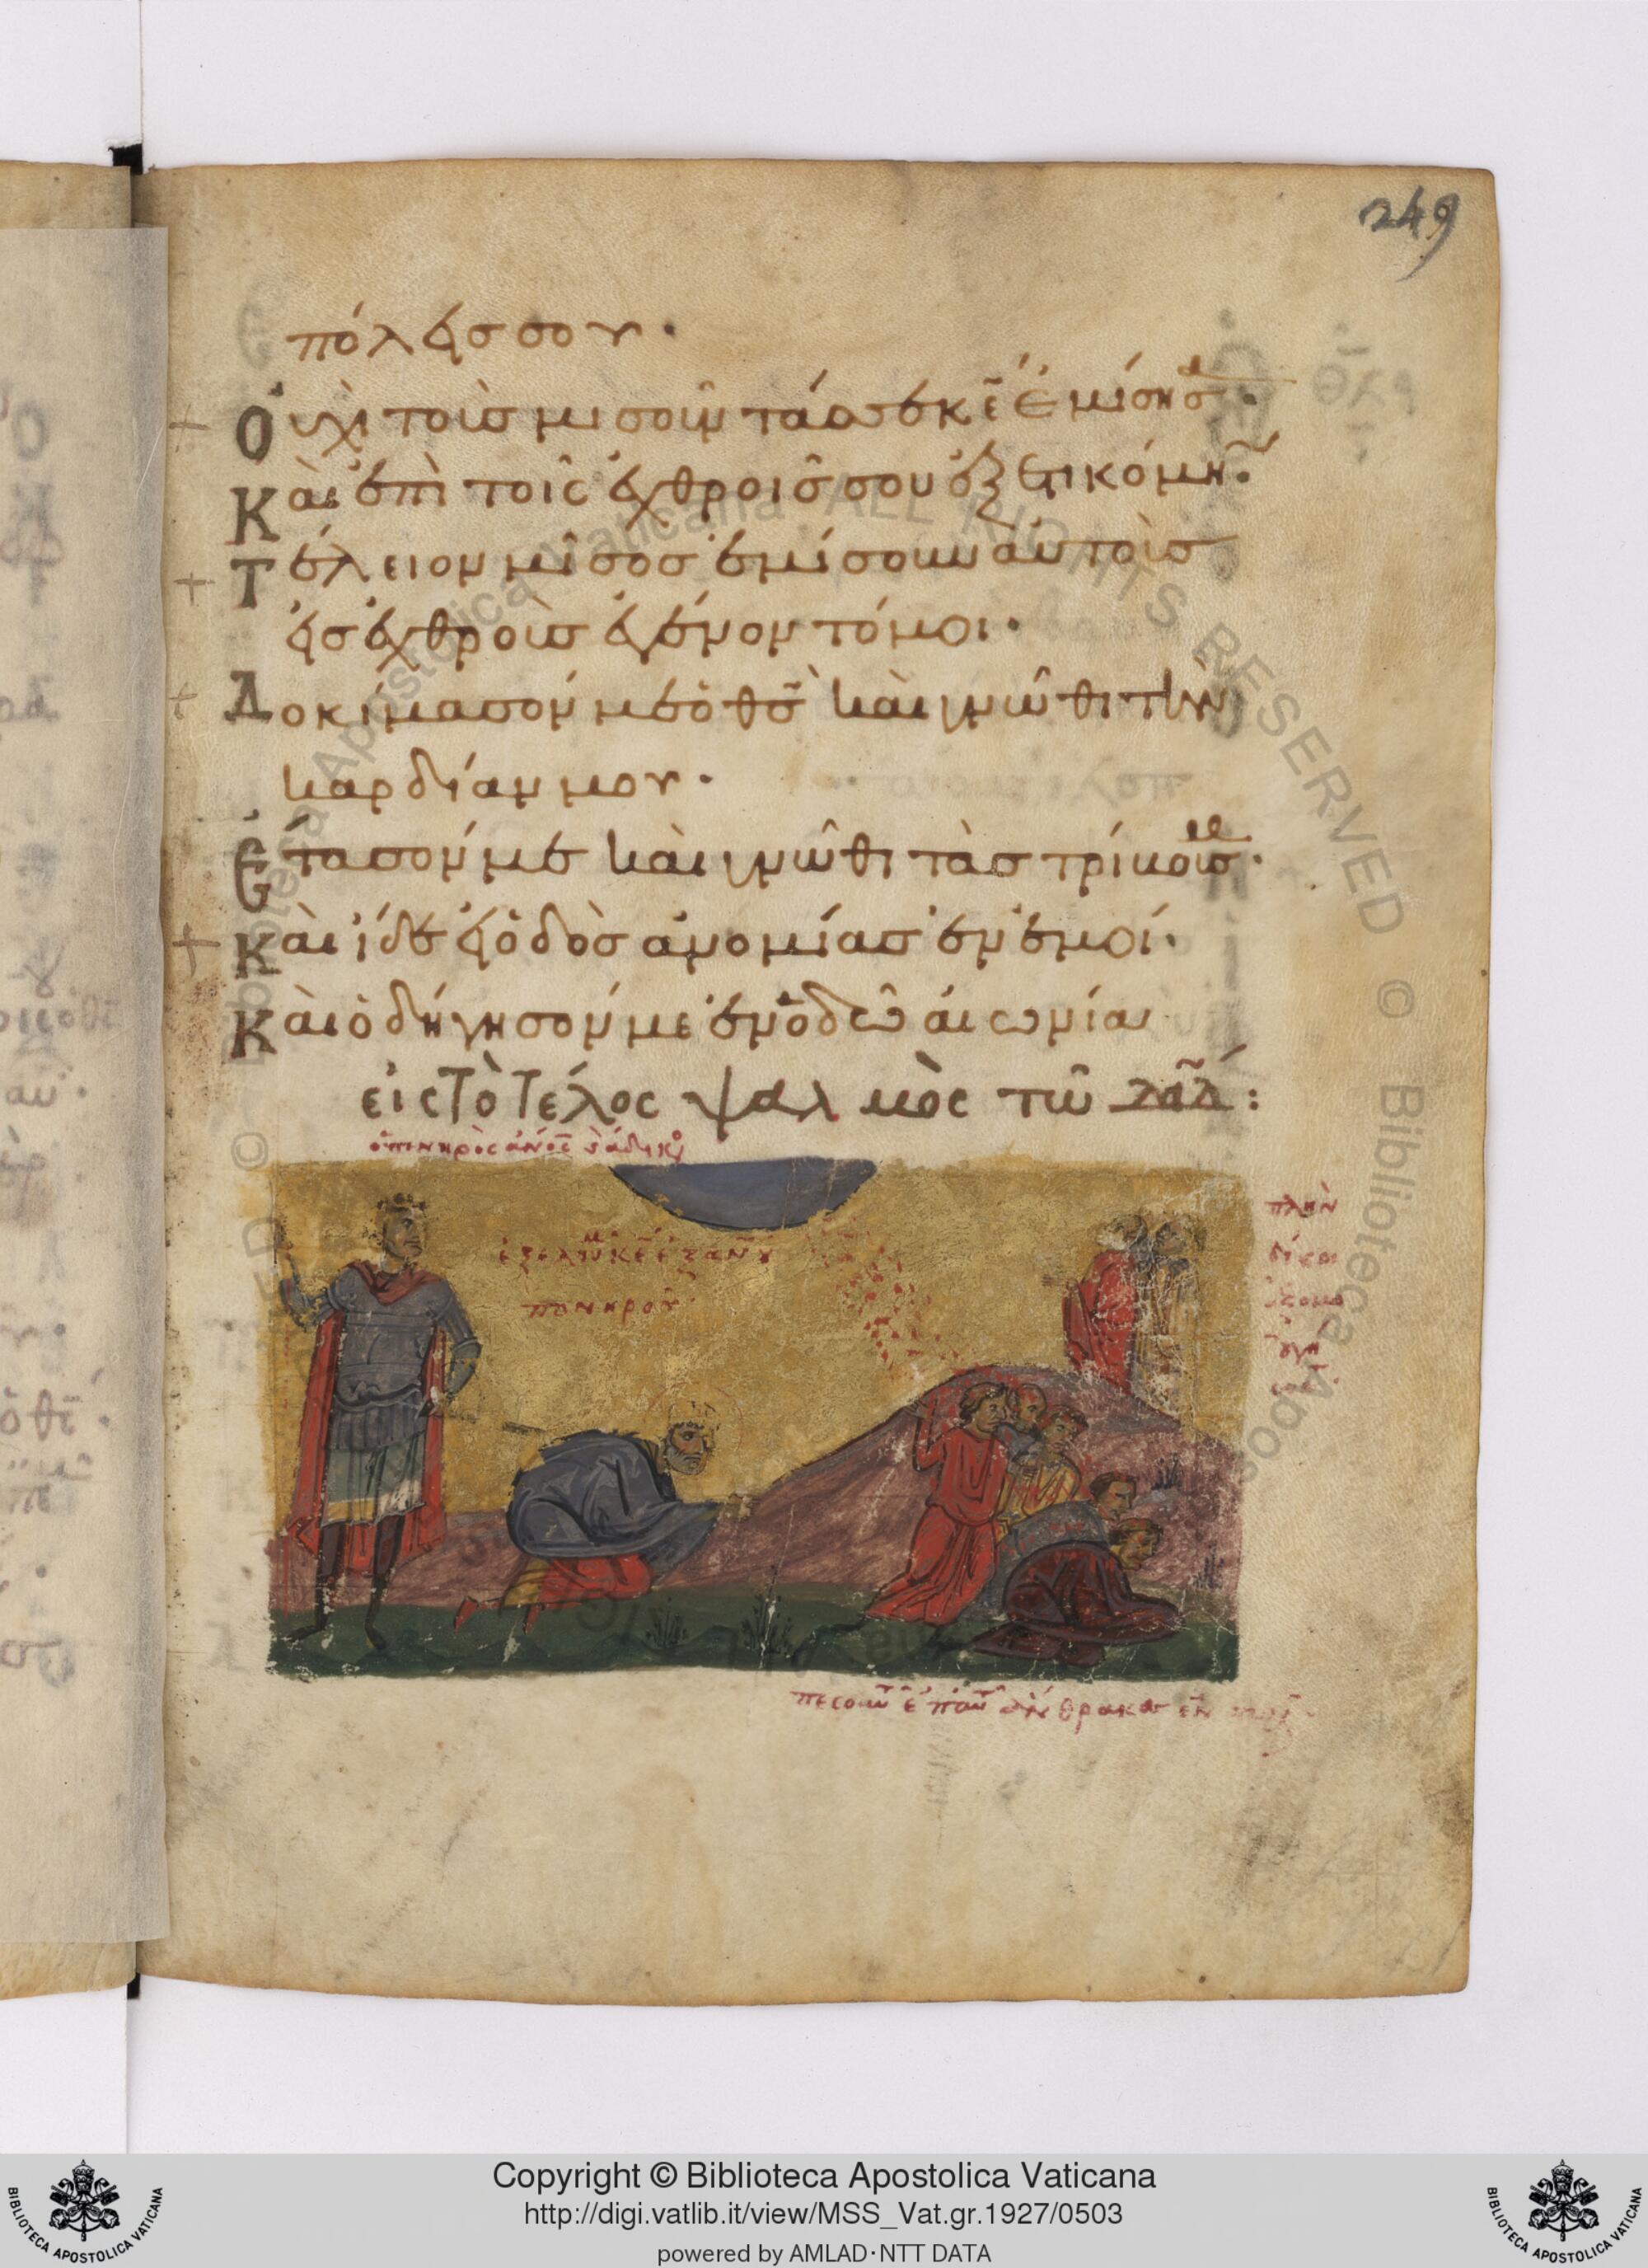 249
πόλεις σου·
Οὐχὶ τοὺς μισοῦντάς σε κε ἐμίσησα·
Καὶ ἐπὶ τοῖς ἐχθροῖς σου ἐξετηκόμην·
Τέλειον μῖσος ἐμίσουν αὐτοὺς
εἰς ἐχθροὺς ἐγένοντό μοι·
Δοκίμασόν με ὁ θς καὶ γνῶθι τὴν
καρδίαν μου·
Ἔτασόν με καὶ γνῶθι τὰς τρίβους·
Καὶ ἴδε εἰ ὁδὸς ἀνομίας ἐν ἐμοί·
Καὶ ὁδήγησόν με ἐν ὁδῶ αἰωνία
εἰς τὸ τέλος ψαλμὸς τῶ δαδ:
ἐξελοῦ με κε ἐξ ανου
πονηροῦ
πλὴν
δίκαι
πεσοῦντ ἐπ αυτ ἄνθρακ
Copyright © Biblioteca Apostolica Vaticana
http://digi.vatlib.it/view/MSS_Vat.gr.1927/0503
powered by AMLAD·NTT DATA
BIBLIOTECA APOSTOLICA VATICANA
BIBLIOTECA APOSTOLICA VATICANA